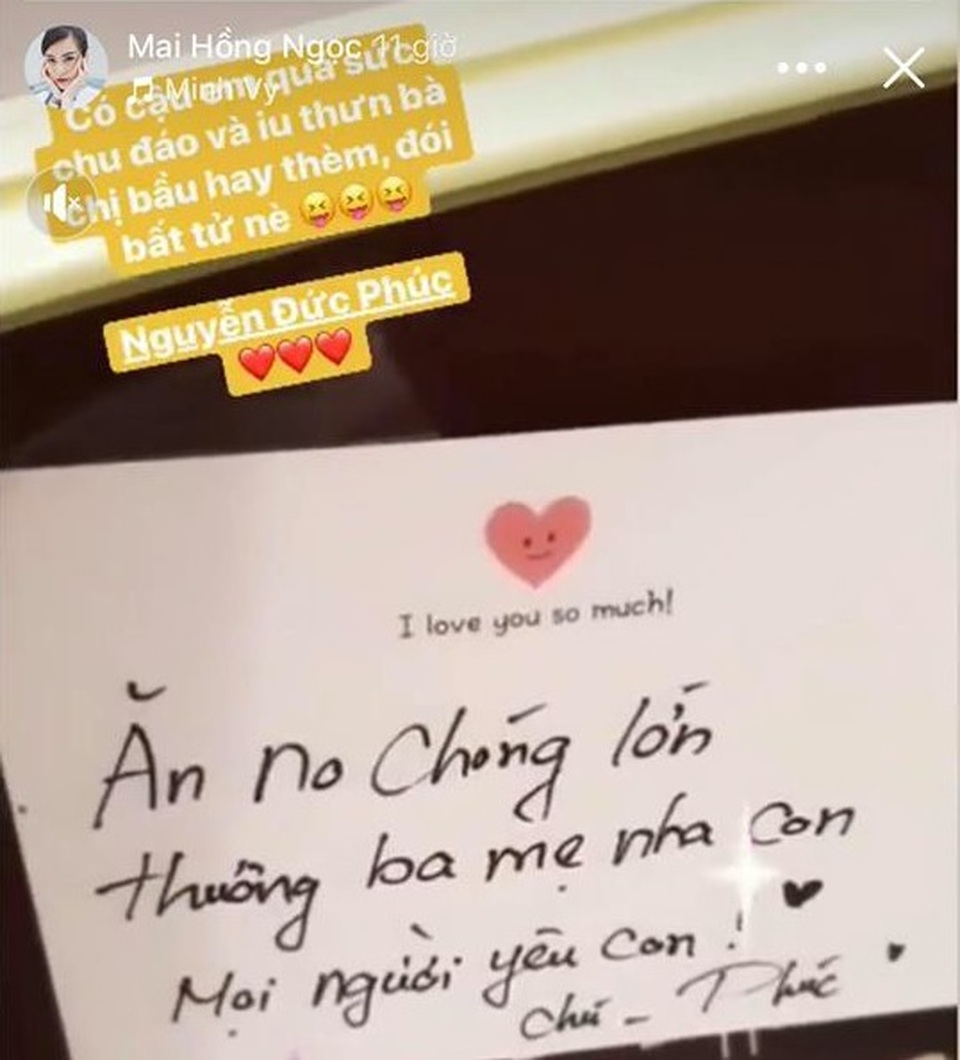 Mai Hồng Ngọc 11 giờ
Minh Vy
Có cậu em quá sức
chu đáo và iu thưn bà
chị bầu hay thèm, đói
bất tử nè 😝😝😝
Nguyễn Đức Phúc
❤️❤️❤️
I love you so much!
Ăn no Chóng lớn
thương ba mẹ nha con
Mọi người yêu con !
Chú - Phúc